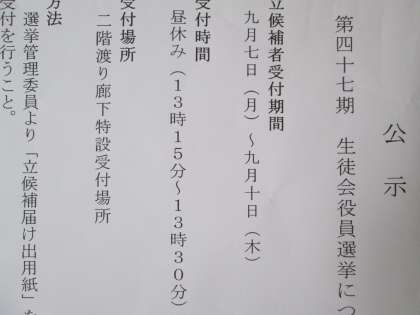 公示
第四十七期　生徒会役員選挙につ
立候補者受付期間
九月七日（月）～九月十日（木）
受付時間
昼休み（１３時１５分～１３時３０分）
受付場所
二階渡り廊下特設受付場所
方法
選挙管理委員より「立候補届け出用紙」を
受付を行うこと。